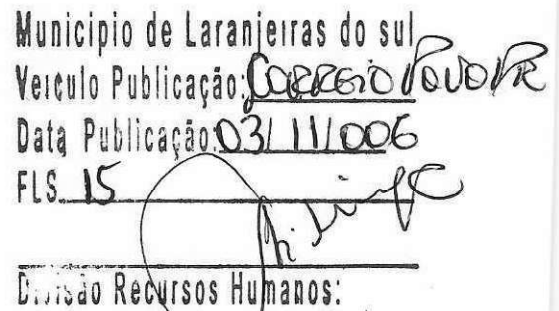 Municipio de Laranjeiras do sul
Veiculo Publicação: CORREIO POVO PR
Data Publicação: 03/11/006
FLS. 15
Divisão Recursos Humanos: